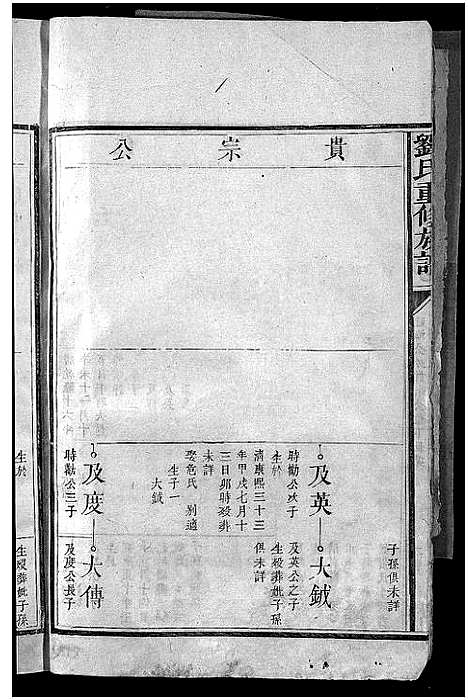 劉氏重修族譜
貴宗公
子孫俱未詳
及英
大鉞
時勤公次子
生於
清康熙三十三
年甲戌七月十
三日卯時歿葬
未詳
娶危氏 別適
生子一
大鉞
及英公之子
生歿葬娶子孫
俱未詳
及慶
大傳
時勤公三子
生於
及慶公長子
生歿葬娶子孫